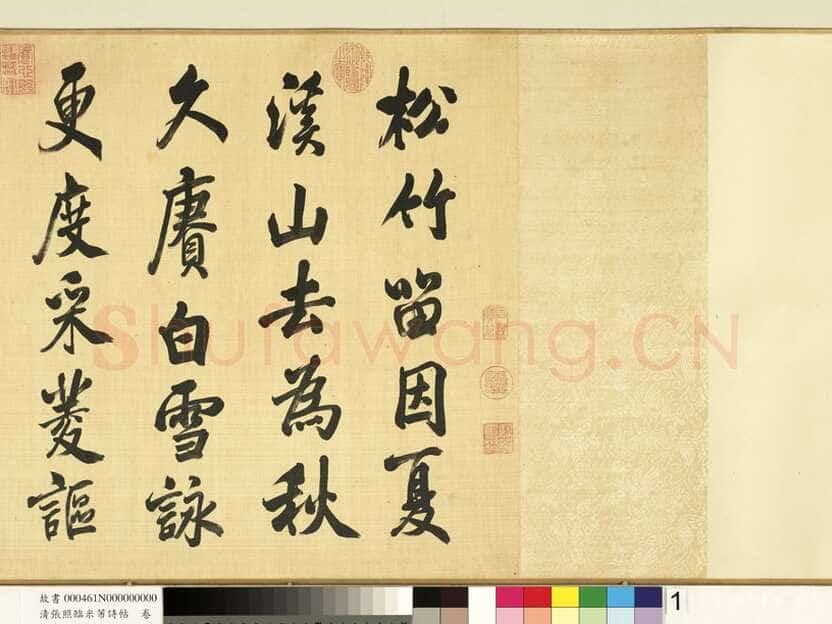 松竹留因夏
溪山去為秋
久賡白雪詠
更度采菱謳
Shufawang.CN
故書 000461N000000000
清張照臨米芾詩帖 卷
1